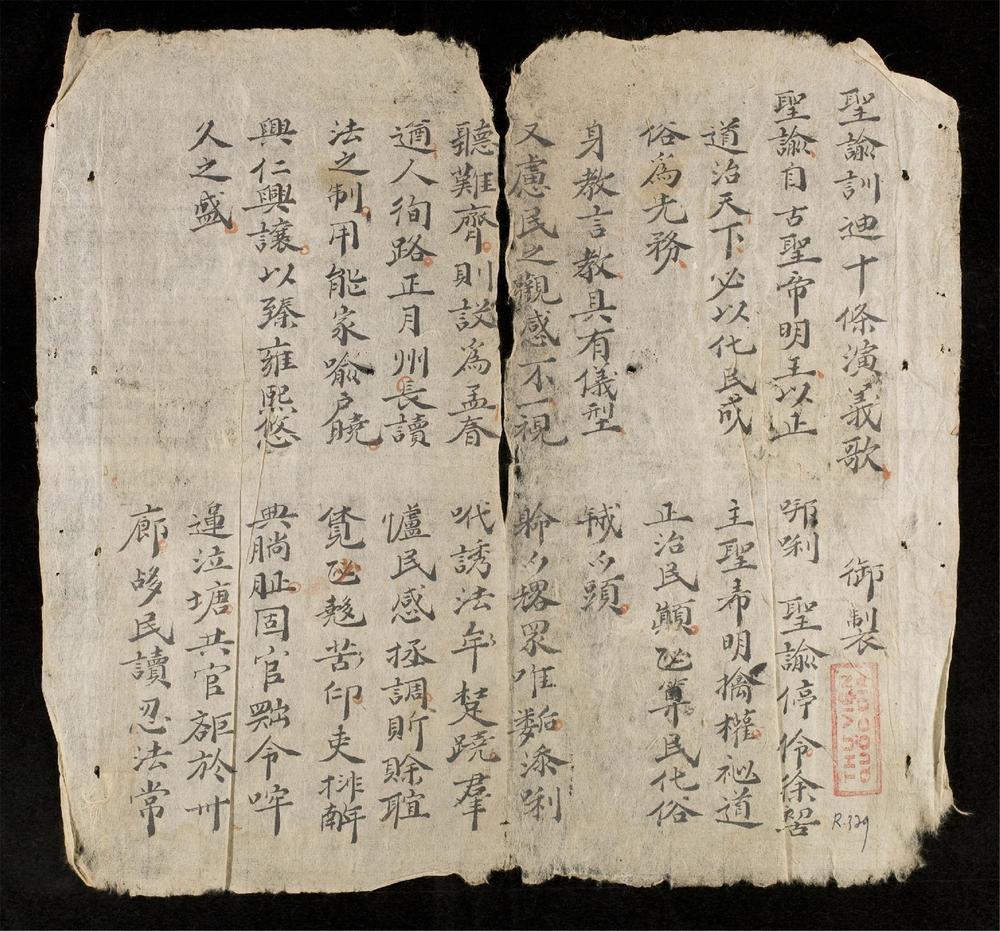 聖諭訓迪十條演義歌
御製
聖諭自古聖帝明王以正
道治天下必以化民成
俗為先務
身教言教具有儀型
又慮民之觀感不一視
聽難齊則說為孟春
遒人徇路正月州長讀
法之制用能家喻戶曉
興仁興讓以臻雍熙悠
久之盛
唎 聖諭停伶徐
主聖希明擒權祂道
正治民顛 民化俗
頭
眾唯 添唎
誘法年楚蹺羣
民感拯調 賒
苦印吏
典 固官 令
運泣塘共官 於卅
廊 民讀忍法常
THƯ VIỆN
QUỐC GIA
R.329